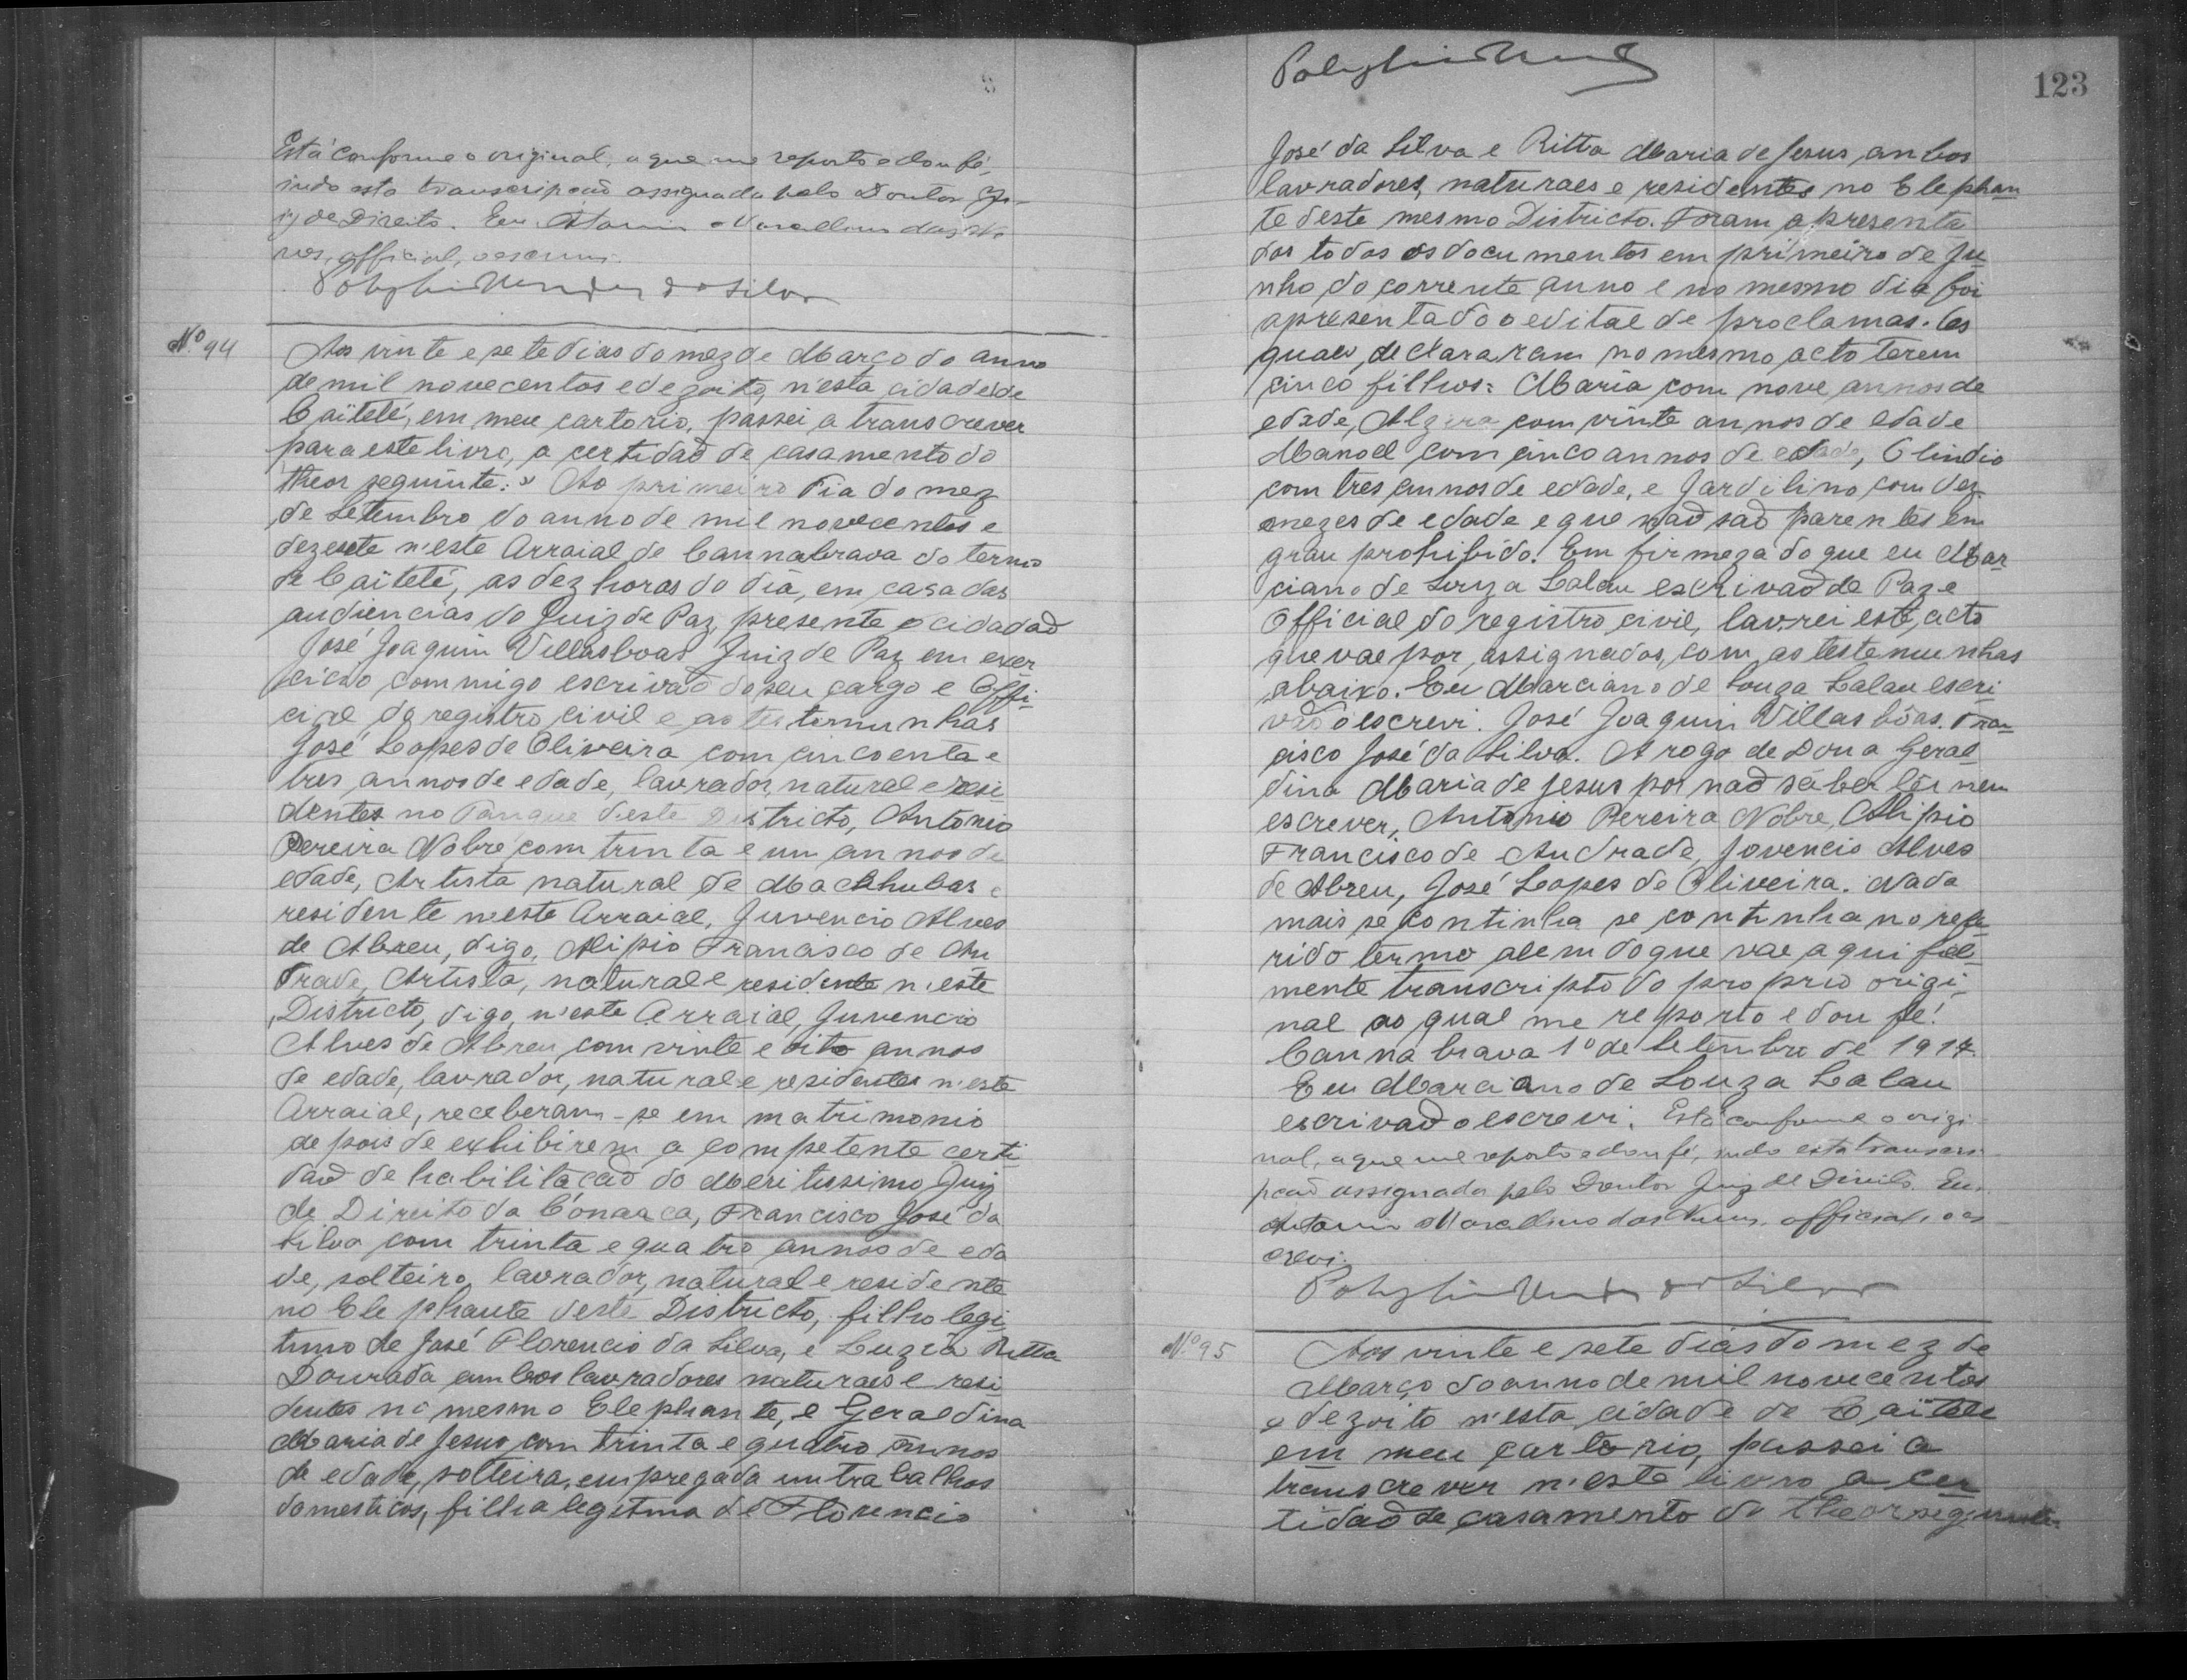 Está conforme o original, a que me reporto e dou fé,
indo esta transcripçaõ assignada pelo Doutor Ju-
iz de Direito. Eu Antonio Marcellino das Ne-
ves, official, o escrevi.
da Silva
Nº 94
Aos vinte e sete dias do mez de Março do anno
de mil novecentos e dezoito, n'esta cidade de
Caïteté, em meu cartorio, passei a transcrever
para este livro, a certidaõ de casamento do
theor seguinte: " Ao primeiro dia do mez
de Setembro do anno de mil novecentos e
dezesete n'este Arraial de Cannabrava do termo
de Caïteté, as dez horas do dia, em casa das
audiencias do Juiz de Paz, presente o cidadaõ
José Joaquim Villasboas Juiz de Paz em exer
cicio commigo escrivaõ do seu cargo e Offi-
cial do registro civil e as testemunhas
José Lopes de Oliveira com cincoenta e
tres annos de edade, lavrador, natural e resi-
dentes no Tanque deste Districto, Antonio
Pereira Nobre com trinta e um annos de
edade, Artista natural de Machubas e
residente n'este Arraial, Juvencio Alves
de Abreu, digo, Alipio Francisco de An
drade, Artista, natural e residente n'este
Districto, digo, n'este Arraial, Juvencio
Alves de Abreu, com vinte e oito annos
de edade, lavrador, natural e residentes n'este
Arraial, receberam-se em matrimonio
depois de exhibirem a competente certi-
daõ de habilitaçaõ do Meritissimo Juiz
de Direito da Cómarca, Francisco José da
Silva com trinta e quatro annos de eda
de, solteiro, lavrador, natural e residente
no Elephante deste Districto, filho legi-
timo de José Florencio da Silva, e Luzia Ritta
Dourada ambos lavradores naturaes e resi
dentes no mesmo Elephante, e Geraldina
Maria de Jesus, com trinta e quatro annos
de edade, solteira, empregada em trabalhos
domesticos, filha legitima de Florencio
123
José da Silva e Ritta Maria de Jesus, ambos
lavradores, naturaes e residentes no Elephan
te deste mesmo Districto. Foram apresenta
dos todos os documentos em primeiro de Ju
nho do corrente anno e no mesmo dia foi
apresentado o edital de proclamas. Os
quaes, declararam no mesmo acto terem
cinco filhos: Maria com nove annos de
edade, Alzira com vinte annos de edade
Manoel com cinco annos de edade, Olindio
com tres annos de edade, e Jardilino com dez
mezes de edade e que naõ saõ parentes em
grau prohibido. Em firmeza do que eu Mar
ciano de Souza Lalau escrivaõ de Paz e
Official do registro civil, lavrei este, acto
que vae por assignados, com as testemunhas
abaixo. Eu Marciano de Souza Lalau escri
vaõ o escrevi. José Joaquim Villasbôas. Fran
cisco José da Silva. A rogo de Dona Geral
dina Maria de Jesus por naõ saber lêr nem
escrever, Antonio Pereira Nobre, Alipio
Francisco de Andrade, Jovencio Alves
de Abreu, José Lopes de Oliveira. Nada
mais se continha se continha no refe
rido termo alem do que vae aqui fiel
mente transcripto do proprio origi
nal ao qual me reporto e dou fé!
Cannabrava 1º de Setembro de 1917
Eu Marciano de Souza Lalau
escrivaõ o escrevi. Está conforme o origi-
nal, a que me reporto e dou fé, indo esta transcri-
pçaõ assignada pelo Doutor Juiz de Direito. Eu
Antonio Marcellino das Neves, official, o es
crevi.
da Silva
Nº 95
Aos vinte e sete dias do mez de
Março do anno de mil novecentos
e dezoito n'esta cidade de Caïteté
em meu cartorio, passei a
transcrever n'este livro a cer
tidaõ de casamento do theor seguinte